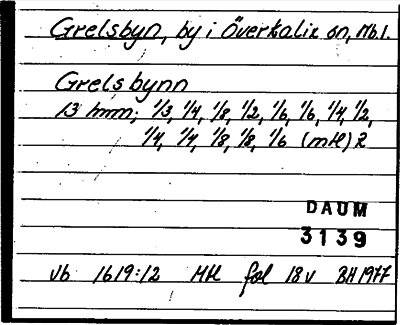 Grelsbyn, by i Överkalix sn, Nb l.
Grelsbynn
13 hmn; 1/3, 1/4, 1/8, 1/2, 1/6, 1/6, 1/4, 1/2,
1/4, 1/4, 1/8, 1/8, 1/6 (mtl) 2
DAUM
3139
Vb 1619:12 Mtl fol 18v BH 1977